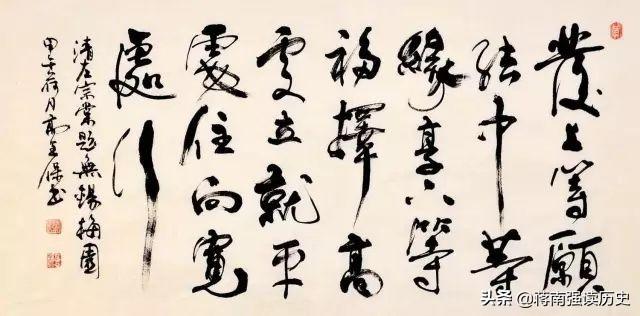 發上等願
結中等
緣享下等
福擇高
處立就平
處住向寬
處行
清左宗棠題無錫梅園
甲午荷月
头条 @蒋南强读历史